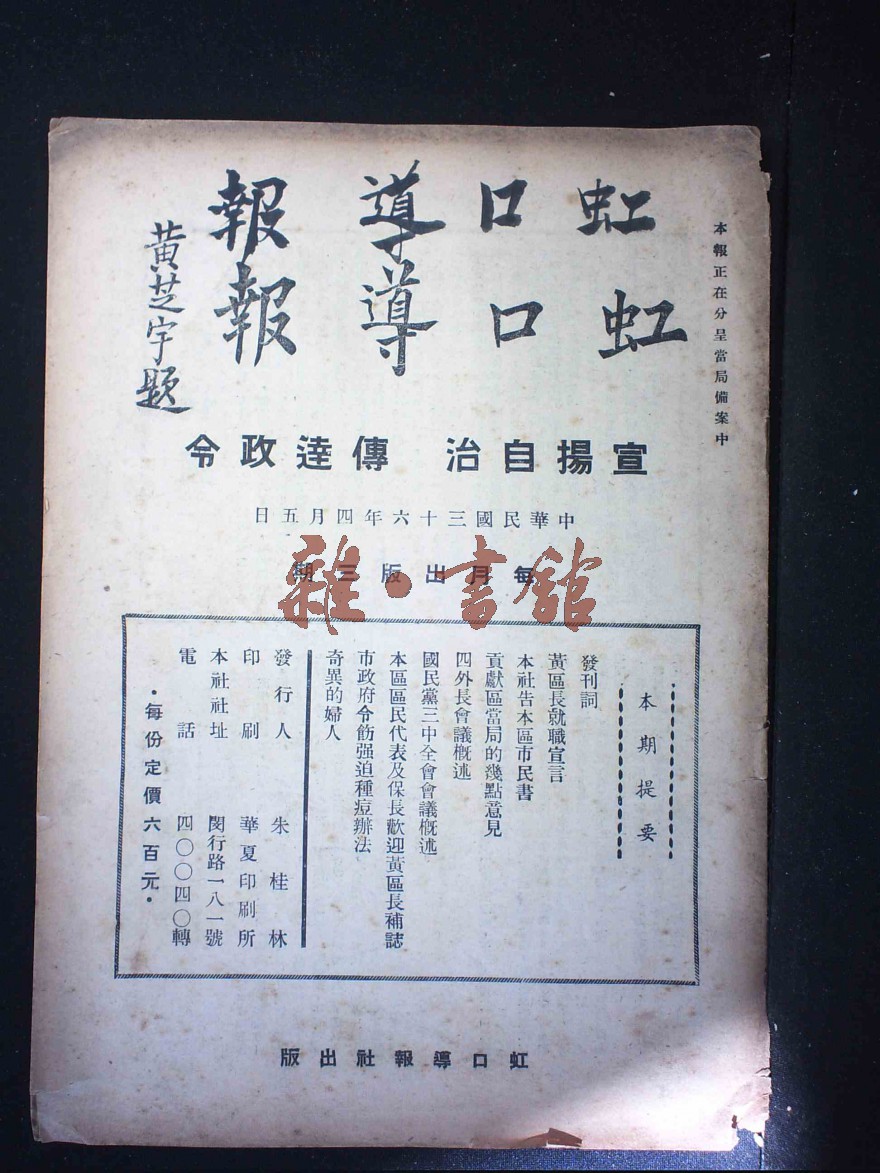 本報正在分呈當局備案中
虹口導報
虹口導報
黃芝宇題
宣揚自治 傳達政令
中華民國三十六年四月五日
每月出版三期
雜·書館
本期提要
發刊詞
黃區長就職宣言
本社告本區市民書
貢獻區當局的幾點意見
四外長會議槪述
國民黨三中全會會議槪述
本區區民代表及保長歡迎黃區長補誌
市政府令飭强迫種痘辦法
奇異的婦人
發行人 朱桂林
印刷 華夏印刷所
本社社址 閔行路一八一號
電話 四〇〇四〇轉
·每份定價六百元·
虹口導報社出版